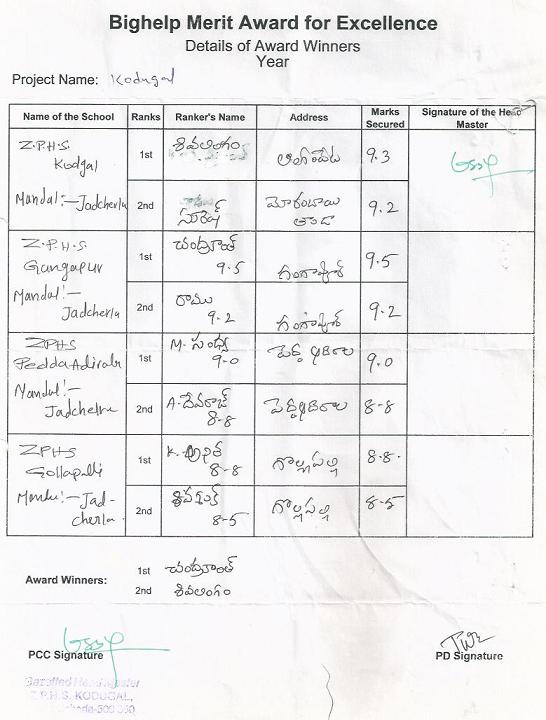 Bighelp Merit Award for Excellence
Details of Award Winners
Year
Project Name: Kodugal
Name of the School Ranks Ranker's Name Address Marks Secured Signature of the Head Master
Z.P.H.S
Kodgal
Mandal:- Jadcherla
1st శివలింగం 9.3
2nd సురేష్ 9.2
Z.P.H.S
Gangapur
Mandal:-
Jadcherla
1st చంద్రకాంత్ 9.5 గంగాపూర్ 9.5
2nd రాము 9.2 గంగాపూర్ 9.2
ZPHS
Mandal:-
1st M. సంధ్య 9-0 పెద్ద ఆదిరాల 9.0
2nd A. దేవరాజ్ 8-8 పెద్దఆదిరాల 8-8
ZPHS
Gollapalli
Jad-
cherla
1st K. అనిత 8-8 గొల్లపల్లి 8-8
2nd 8-5 గొల్లపల్లి 8-5
Award Winners: 1st చంద్రకాంత్
2nd శివలింగం
PCC Signature PD Signature
Gazetted Head Master
Z.P.H.S. KODUGAL,